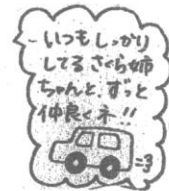 いつもしっかり
してるさくら姉
ちゃんと、ずっと
仲良くネ!!